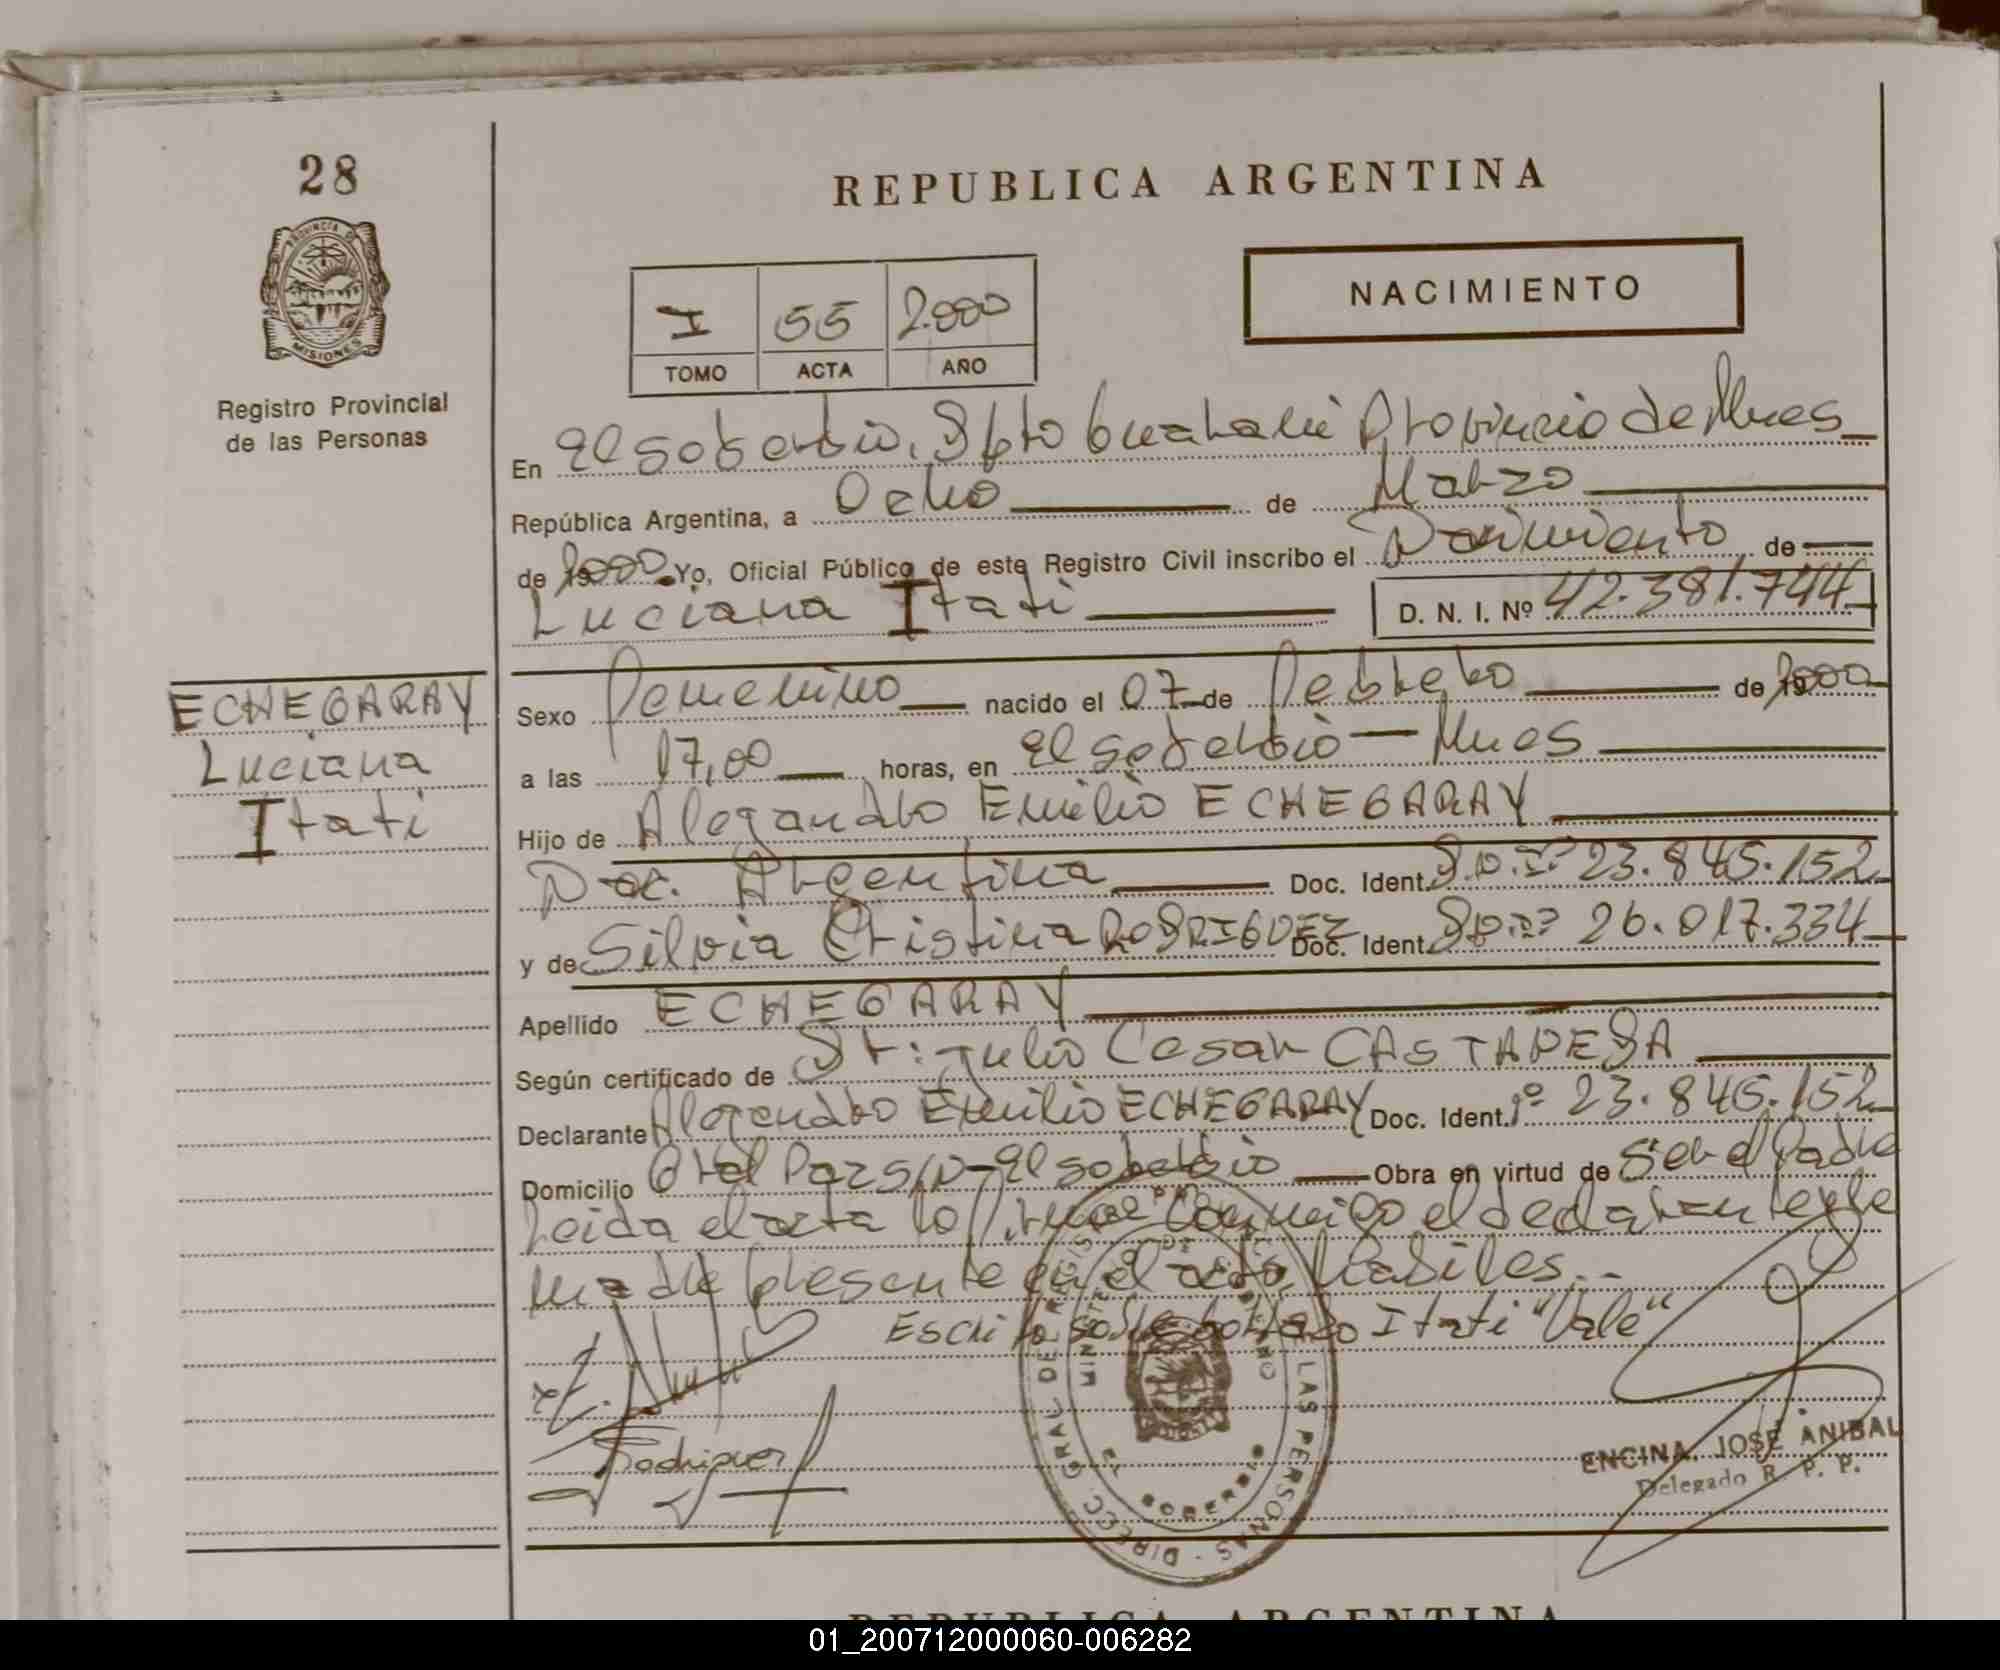 28
REPUBLICA ARGENTINA
PROVINCIA DE
MISIONES
Registro Provincial
de las Personas
I 55 2.000
TOMO ACTA AÑO
NACIMIENTO
En El Soberbio, Dpto Guarani Provincia de Mnes
República Argentina, a Ocho de Marzo
de 2000 Yo, Oficial Público de este Registro Civil inscribo el Nacimiento de
Luciana Itati D. N. I. Nº 42.381.744
ECHEGARAY
Luciana
Itati
Sexo Femenino nacido el 07 de Febrero de 2000
a las 17,00 horas, en El Soberbio - Mnes
Hijo de Alejandro Emilio ECHEGARAY
Nac. Argentina Doc. Ident. D.N.I. 23.845.152
y de Silvia Cristina RODRIGUEZ Doc. Ident. 26.017.334
Apellido ECHEGARAY
Según certificado de Dr: Julio Cesar CASTAÑEDA
Declarante Alejandro Emilio ECHEGARAY Doc. Ident. Nº 23.845.152
Domicilio Gral Paz S/N - El Soberbio Obra en virtud de Ser el Padre
Leida el acta la firman conmigo el declarante y la
madre presente en el acto, habiles.-
Escrito sobre borrado Itati "Vale"
Rodriguez
ENCINA, JOSÉ ANIBAL
Delegado R. P. P.
DIRECC. GRAL DE REGISTRO LAS PERSONAS
MINISTE
GOBIERNO
EL SOBERBIO
REPUBLICA ARGENTINA
01_200712000060-006282